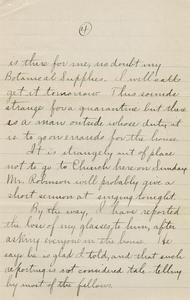 4
is there for me, no doubt my
Botanical Supplies. I will call &
get it tomorrow. This sounds
strange for a quarantine but there
is a man outside whose duty it
is to go on errands for the house.
It is strangely out of place
not to go to Church here on Sunday
Mr. Robinson will probably give a
short sermon at singing tonight.
By the way, I have reported
the loss of my glasses, to him, after
asking everyone in the house. He
says he is glad I told, and that such
reporting is not considered tale-telling
by most of the fellows.